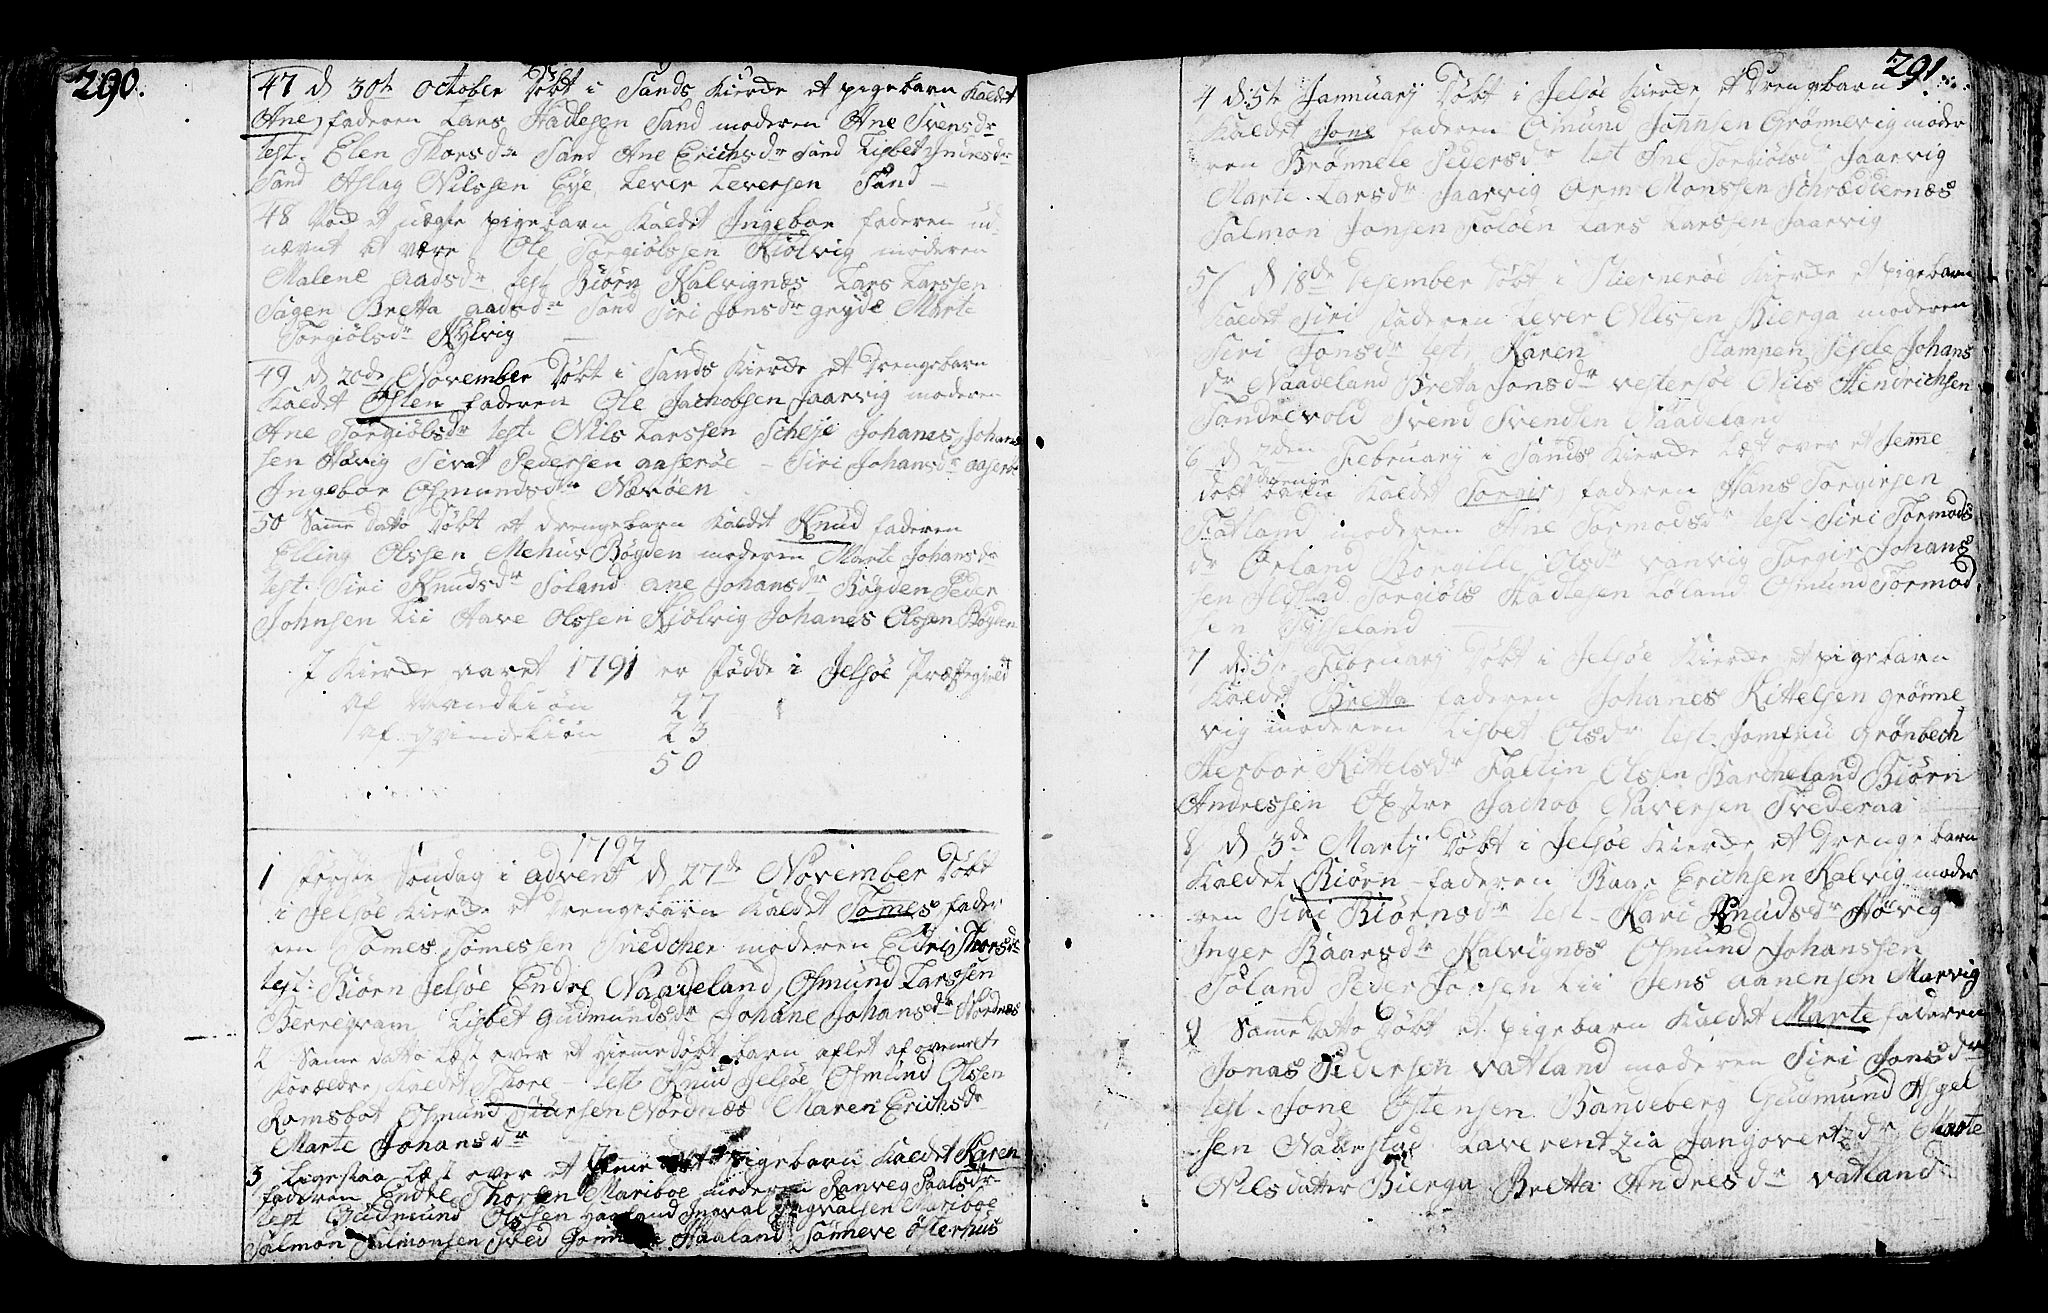 290.
47 d 30t October Døbt i Sands Kierke et pigebarn Kaldet
Ane, faderen Lars Hadlesen Sand moderen Ane Svensdr
test. Elen Thorsdr Sand Ane Erichsdr Sand Lisbet
Sand Aslag Nilssen Eye, Lever Leversen Sand
48 et uægte pigebarn Kaldet Ingebor faderen ud-
nævnt at være Ole Torgiølssen Kiolvig moderen
Malene aadsdr test Biørn Kalvignæs Lars Larssen
Sagen Bretta aadsdr Sand Siri Jonsdr gryde Marte
Torgiølsdr Kylvig
49 d 20de November Døbt i Sands Kierke et Drengebarn
Kaldet Østen faderen Ole Jachobsen Jaarvig moderen
Ane Torgiølsdr test Nils Larssen Scheje Johanes Johans
sen Høvig Sivat Pedersen aaserøe - Siri Johansdr aaserøe
Ingebor Osmundsdtr Nævøen
50 Same Dato Døbt et drengebarn Kaldet Knud faderen
Elling Olssen Mehus Bøgden moderen Marte Johansdr
test. Siri Knudsdr Soland ane Johansdr Bøgden Peder
Johnsen Lii Aave Olssen Kiolvig Johanes Olssen Bøgden
I Kierke aaret 1791 er fødde i Jelsøe Præstegield
af Mandkiøn 27
af qvindekiøn 23
50
1792
1 første Søndag i advent d 27de November Døbt
i Jelsøe Kierke et Drengebarn Kaldet Tomes fader
ren Tomes Tomessen Snedcher moderen Eldri Thorsdr
test: Biørn Jelsøe Endre Naadeland, Osmund Larssen
Berregram, Lisbet Gudmundsdr Johane Johansdr Nordnæs
2 Same datto Læst over et hiemedøbt barn aflet af ovenmelte
Forældre, Kaldet Thore - test Knud Jelsøe, Osmund Olssen
Ramsbot Osmund Nordnæs Maren Erichsdr
Marte Johansdr
3 Ligesaa Læst over et pigebarn Kaldet Karen
faderen Endre Thorsen Mariboe moderen Ranveg Paalsdr
test Gudmund Olssen Haaland Ingval Ingvalsen Mariboe
Salmon Salmonsen Haaland Sønneve Østerhus
291.
4 d 5te Jannuarij Døbt i Jelsøe Kierke et Drengebarn
Kaldet Jone faderen Osmund Johnsen Grønnevig moder
ren Brønnele Pedersdr test Ane Torgiølsdr Jaarvig
Marte Larsdr Jaarvig Orm Monssen Schreddernæs
Salmon Jonsen Foløen Lars Larssen Jaarvig
5 d 18de Desember Døbt i Hiernerøe Kierke et pigebarn
Kaldet Siri faderen Lever Nilssen Bierga moderen
Siri Jonsdr test, Karen Stampen, Johans
dr Naadeland Bretta Jonsdr vestersøe Nils Hendrichsen
Sandevold Svend Svendsen Naadeland
6 d 2den Februarij i Sands Kierke Læst over et Jeme
døbt drenge barn Kaldet Torgir, faderen Hans Torgirsen
Fatland moderen Ane Tormodsdr test - Siri Tormods
dr Ørland Borgille Olsdr vanvig Torgir Johans
sen Ilstad Torgiøls Hadlesen Løland Osmund Tormod
sen Tysseland
7 d 5te Februarij Døbt i Jelsøe Kierke et pigebarn
Kaldet Bretta faderen Johanes Kittelsen grønne
vig moderen Lisbet Olsdr test. Jomfru Grønbech
Herbor Kittelsdr Fallin Olssen Barcheland Biørn
Andressen Østre Jachob Naversen Tvederaa
8 d 3de Martij Døbt i Jelsøe Kierke et Drenge barn
Kaldet Biørn - faderen Baar Erichsen Kalvig moder
ren Siri Biørnsdr test - Kari Knudsdr Høvig
Inger Baarsdr Kalvignæs Osmund Johanssen
Søland Peder Jonsen Lii Jens aanensen Marvig
9 Same Datto Døbt et pigebarn Kaldet Marte faderen
Jonas Pedersen vatland moderen Siri Jonsdr
test - Jone Østensen Bandeberg Gudmund Apel
sen Naustad Laverentzia Jangovertzdr Marte
Nilsdatter Bierga Bretta Andresdr vatland